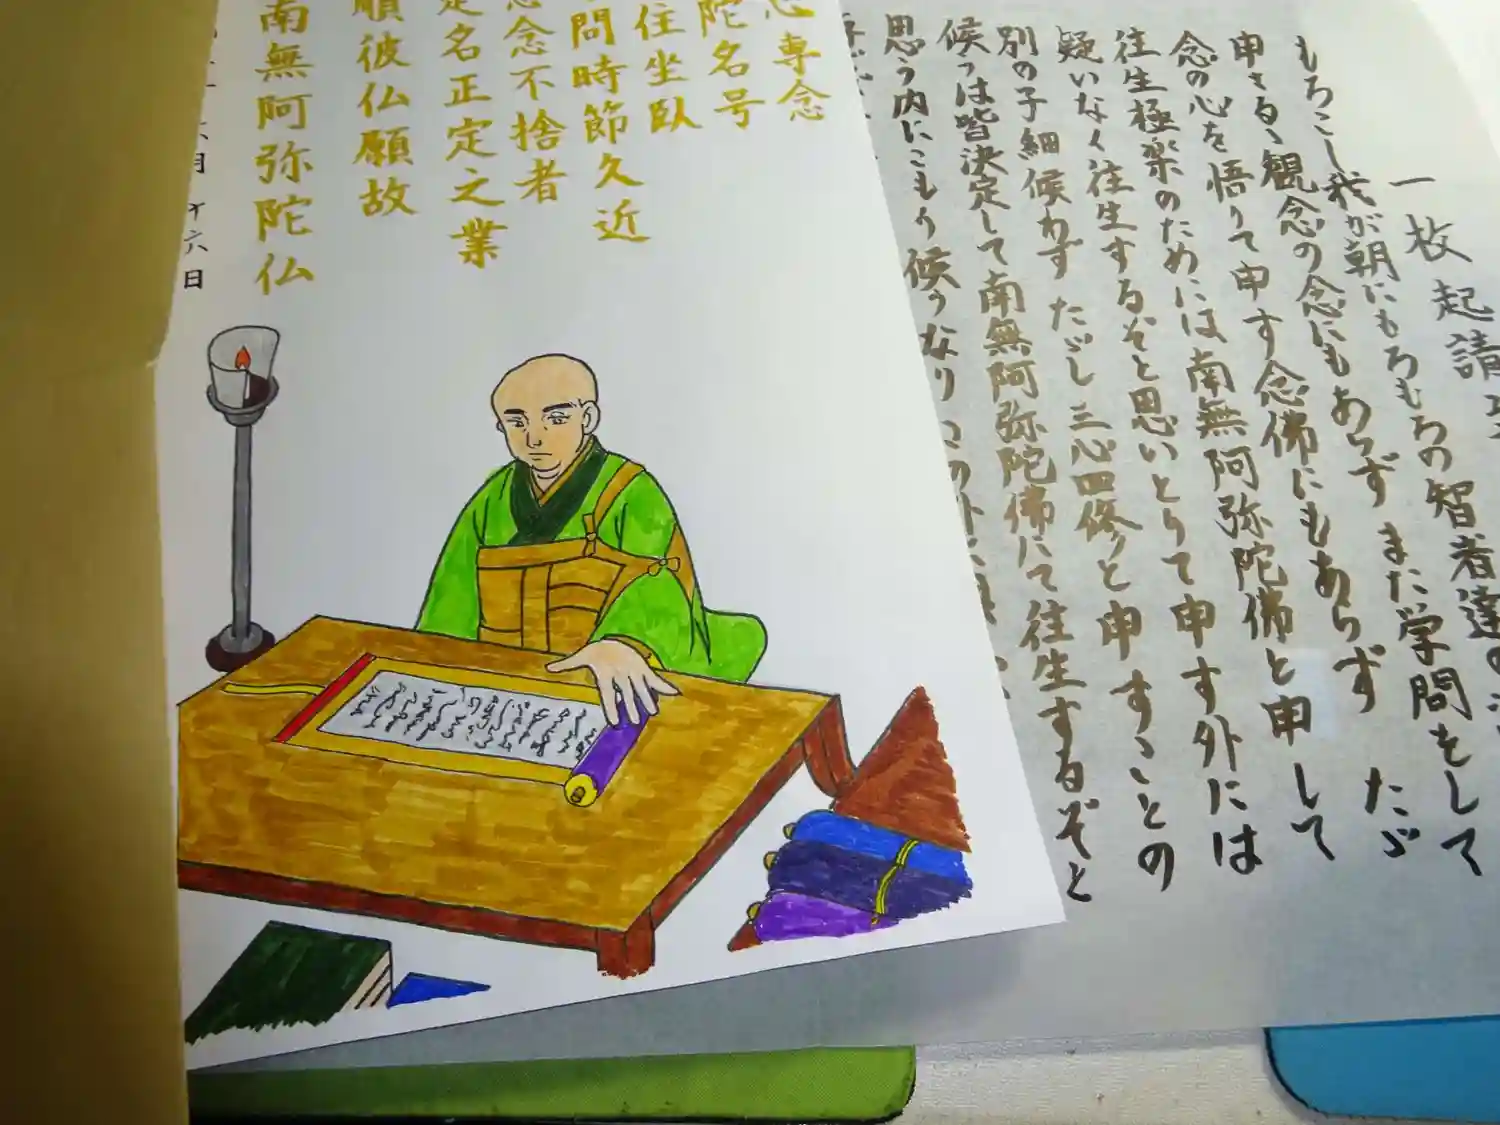 一枚起請
もろこし我が朝にもろもろの智者達の
申さるゝ観念の念にもあらずまた学問をして
念の心を悟りて申す念佛にもあらず たゞ
往生極楽のためには南無阿弥陀佛と申して
疑いなく往生するぞと思いとりて申す外には
別の子細候わず たゞし三心四修と申すことの
候うは皆決定して南無阿弥陀佛にて往生するぞと
思う内にこもり候うなり この外に
専念
陀名号
住坐臥
問時節久近
念不捨者
定名正定之業
順彼仏願故
南無阿弥陀仏
月十六日